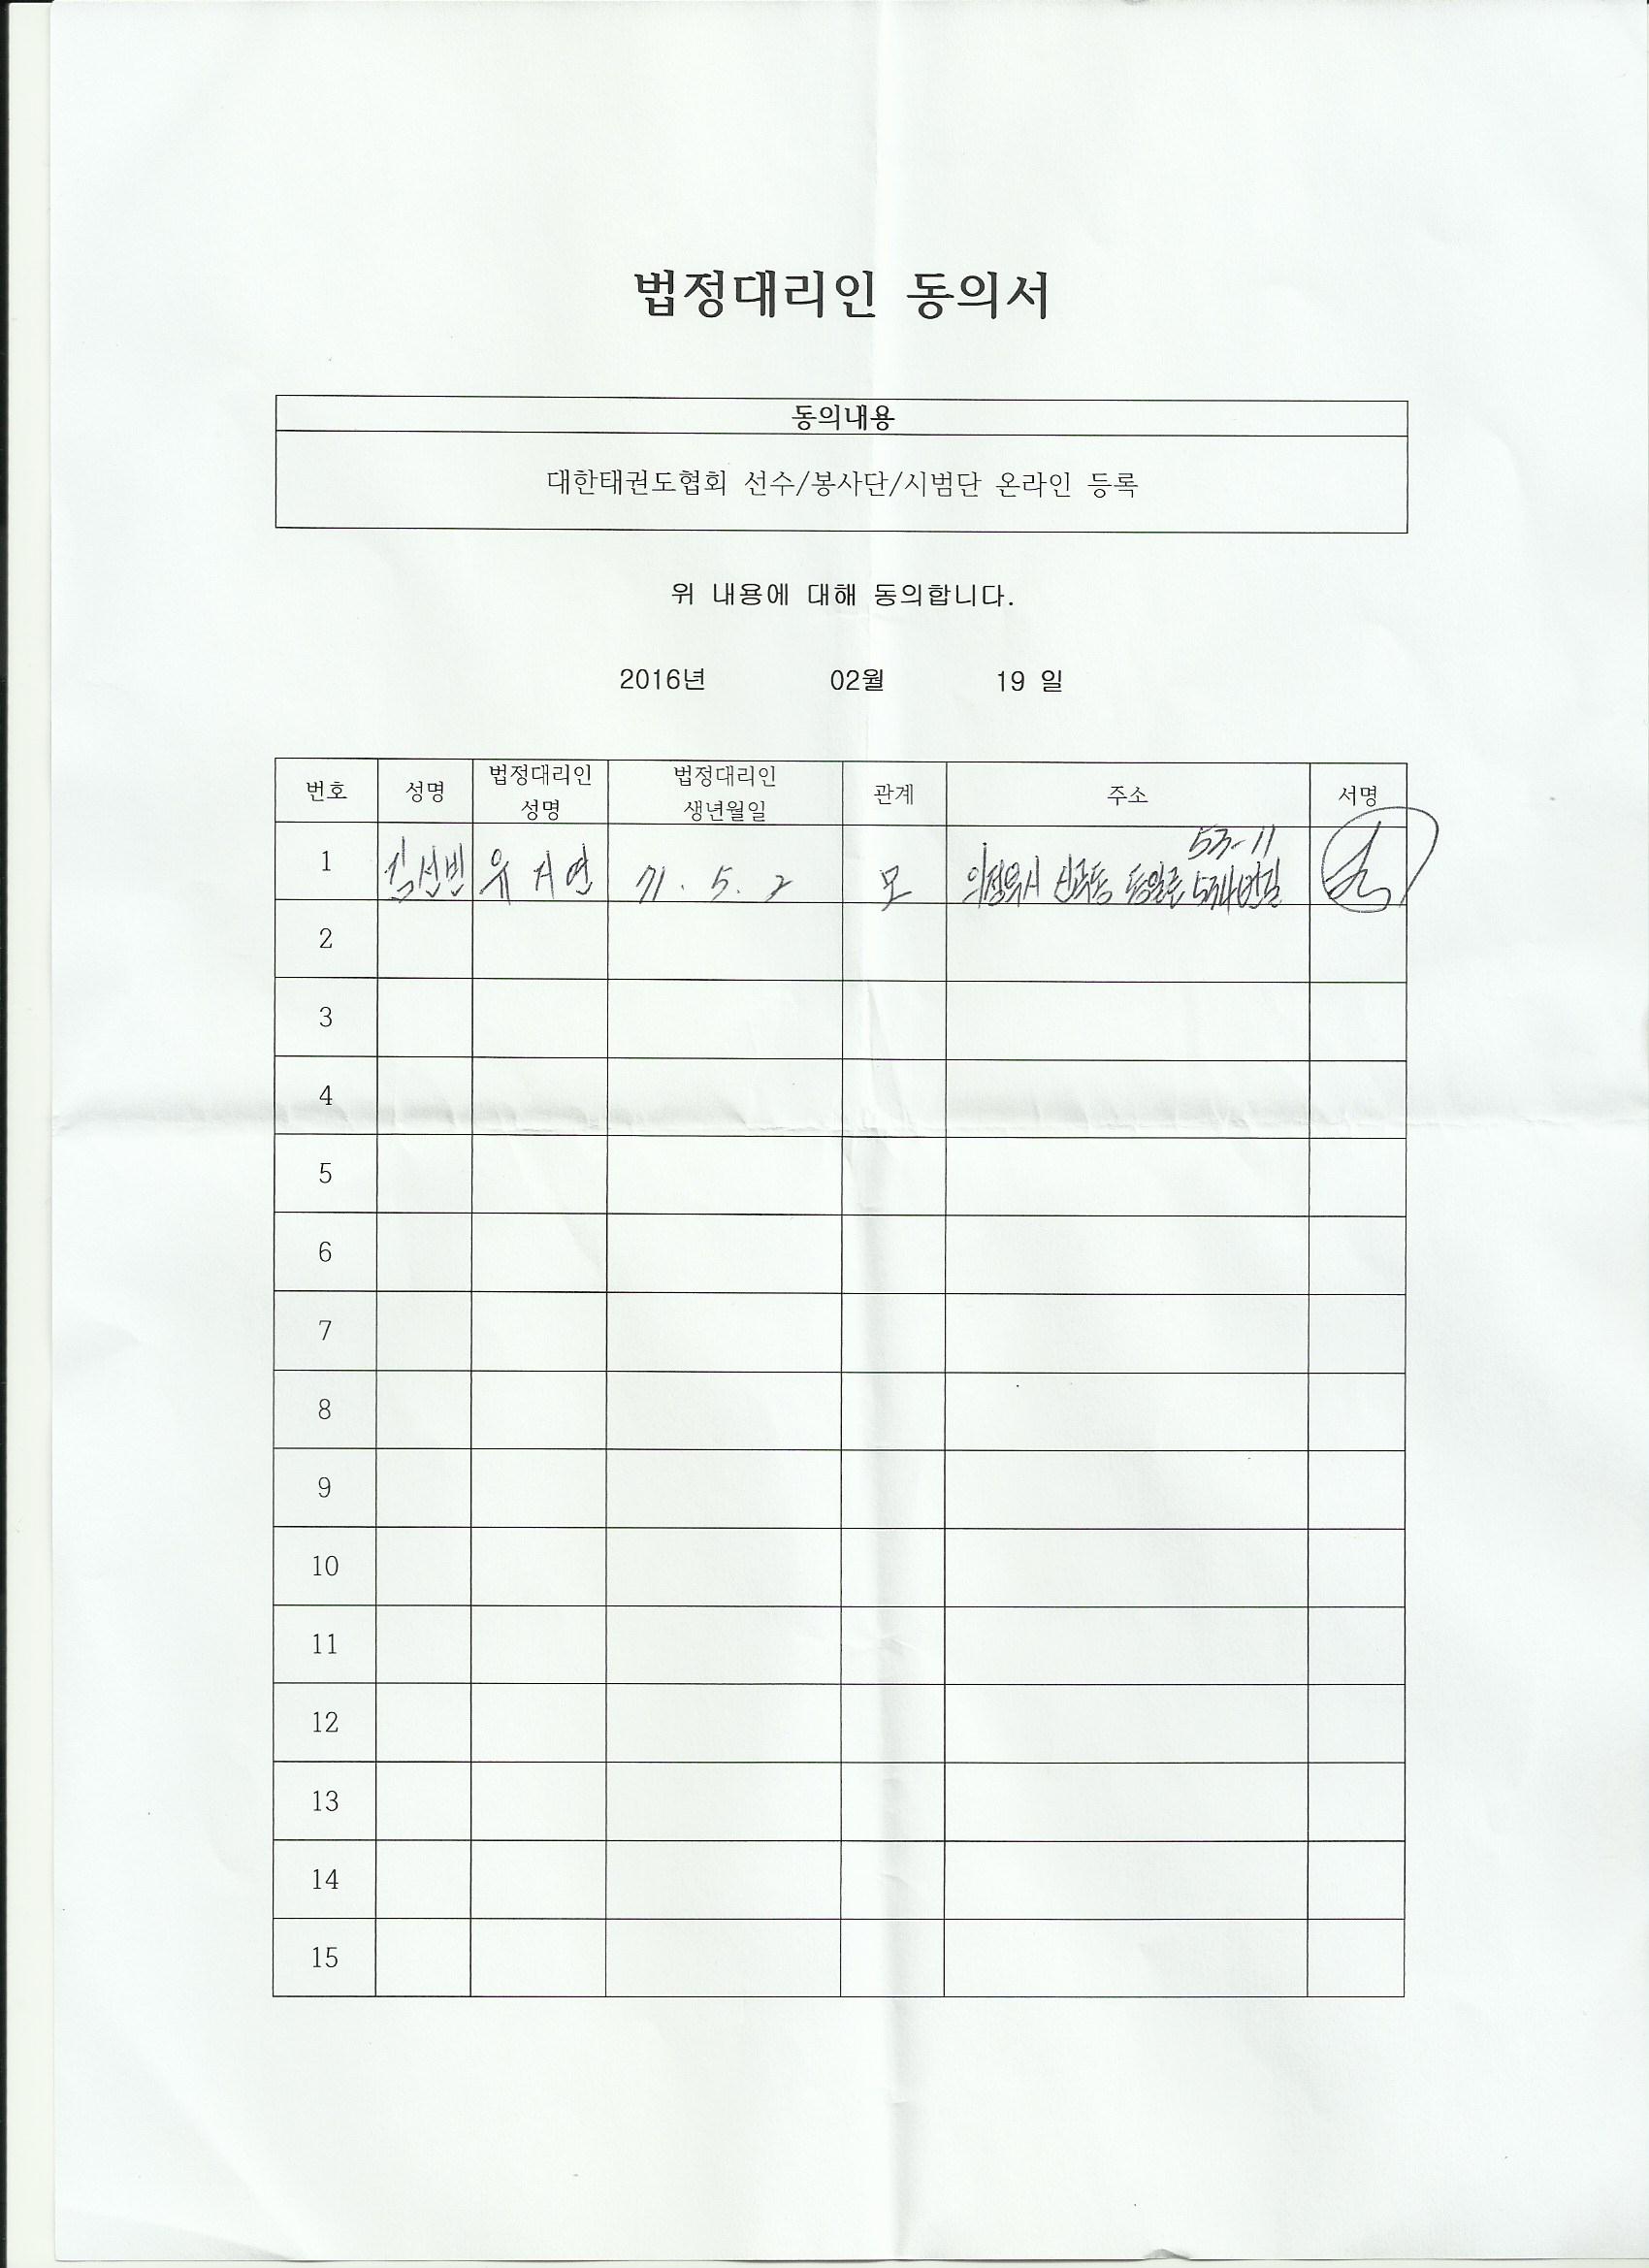 법정대리인 동의서
동의내용
대한태권도협회 선수/봉사단/시범단 온라인 등록
위 내용에 대해 동의합니다.
2016년 02월 19 일
번호 성명 법정대리인 성명 법정대리인 생년월일 관계 주소 서명
53-11
1 김선빈 유지연 71. 5. 2 모 의정부시 신곡동 동일로 번길
2
3
4
5
6
7
8
9
10
11
12
13
14
15